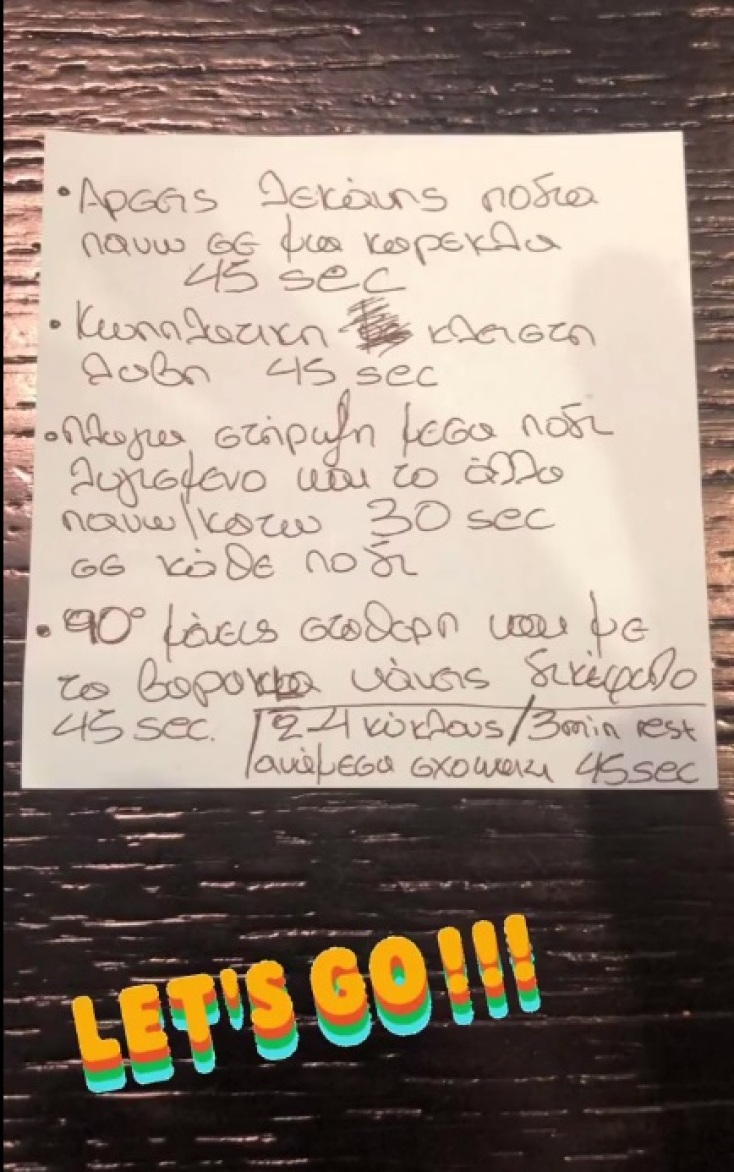 • Αρσεις λεκάνης ποδια
πανω σε μια καρεκλα
45 sec
• Κωπηλατικη κλειστη
λαβη 45 sec
• Πλαγια στήριψη μεσα ποδι
λυγισμενο και το άλλο
πανω/κατω 30 sec
σε κάθε ποδι
• 90° μένεις σταθερη και με
το βαρακια κάνεις δικέφαλο
45 sec. 2-4 κύκλους/3min rest
ανάμεσα σχοινακι 45sec
LET'S GO!!!